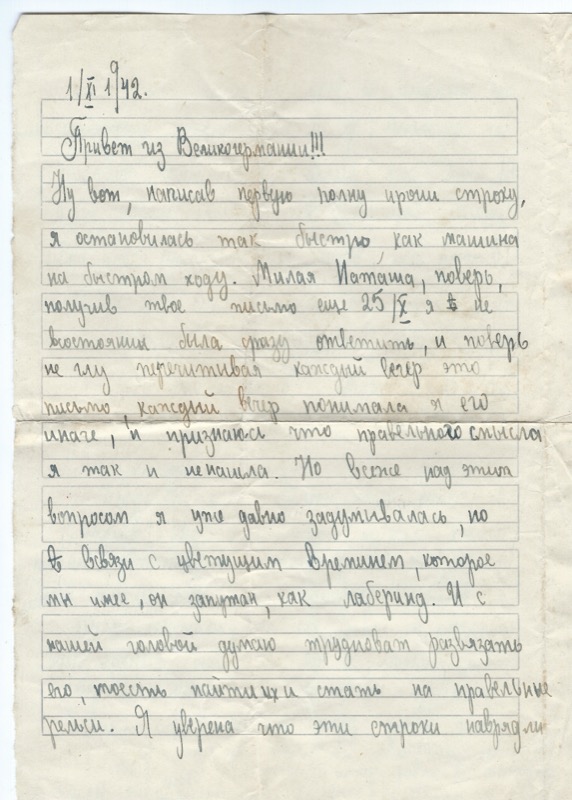 1/XI 1942.
Привет из Великогермании!!!
Ну вот, написав первую полну ирони строку,
я остановилась так быстро, как машина
на быстром ходу. Милая Наташа, поверь,
получив твое письмо еще 25/X я не
всостоянии была сразу ответить, и поверь
не лгу перечитивая каждый вечер это
письмо, каждый вечер понимала я его
иначе, и признаюсь что правельного смысла
я так и ненашла. Но всеже над этим
вопросом я уже давно задумывалась, но
всвязи с цветущим времинем, которое
мы имее, он запутан, как лаберинд. И с
нашей головой думаю трудноват развязать
его, тоесть найти их и стать на правельные
рельси. Я уверена что эти строки наврядли